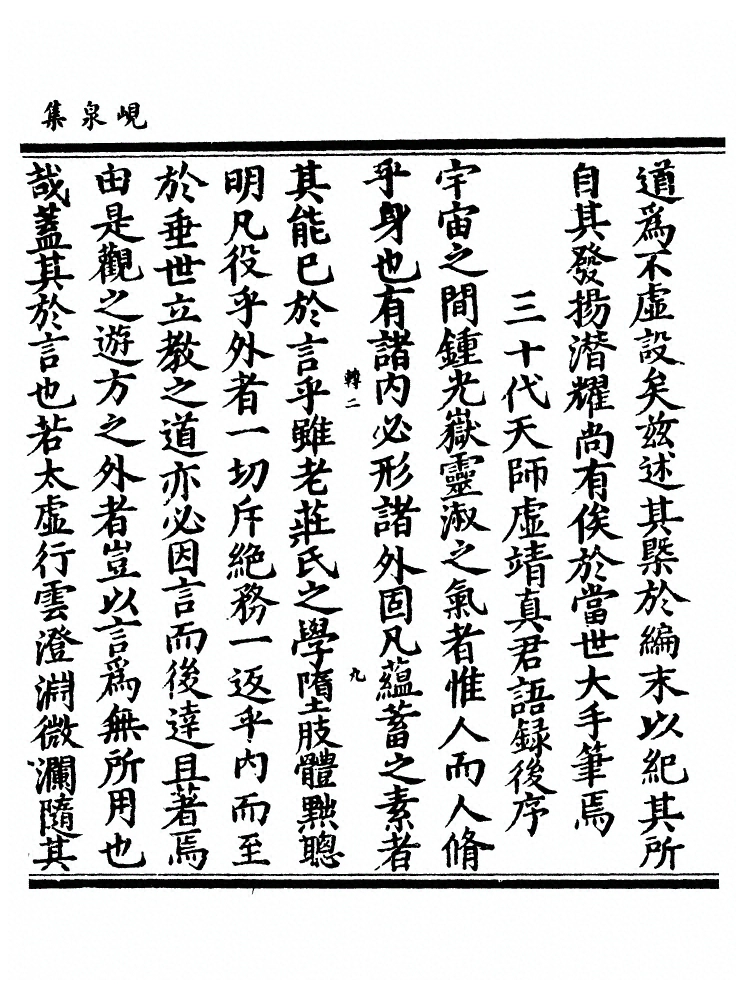 峴泉集
道爲不虛設矣兹述其槩於編末以紀其所
自其發揚潛耀尚有俟於當世大手筆焉
三十代天師虛靖真君語録後序
宇宙之間鍾光嶽靈淑之氣者惟人而人脩
乎身也有諸内必形諸外固凡蘊蓄之素者
轉二
九
其能已於言乎雖老莊氏之學墮肢體黜聰
明凡役乎外者一切斥絶務一返乎内而至
於垂世立教之道亦必因言而後逹且著焉
由是觀之遊方之外者豈以言爲無所用也
哉蓋其於言也若太虛行雲澄淵微瀾隨其